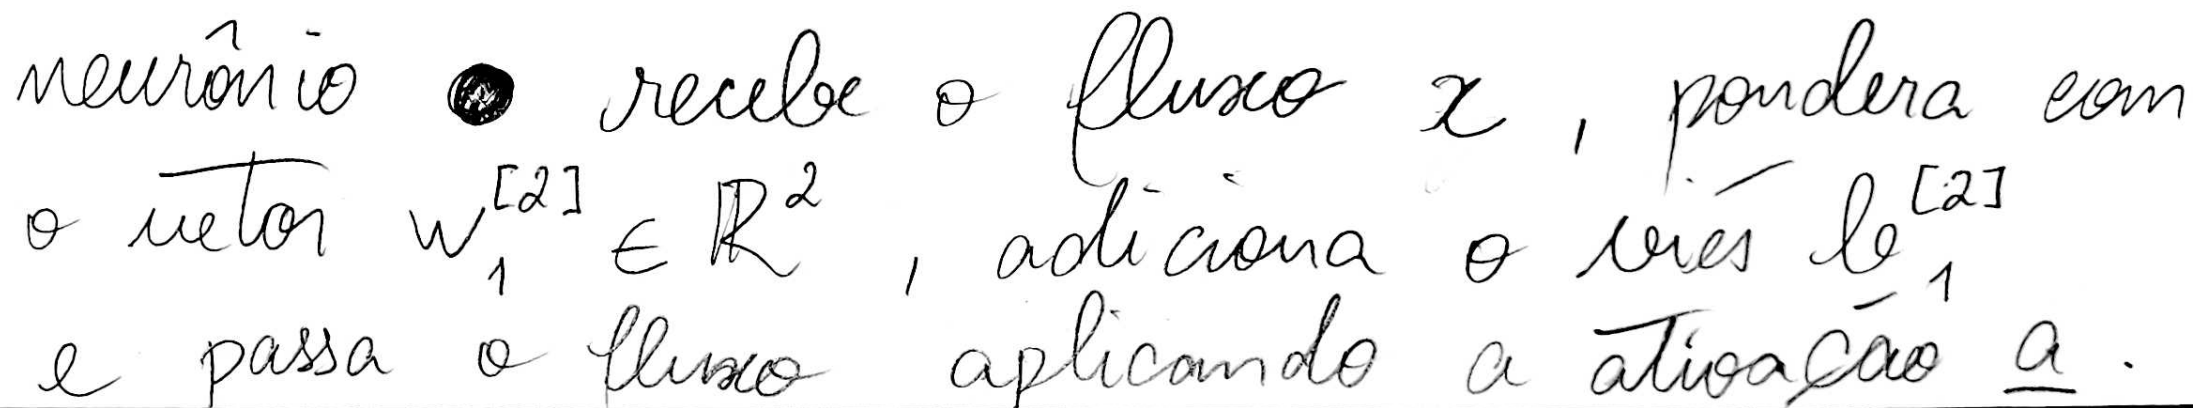 neurônio ● recebe o fluxo x, pondera com
o vetor w₁^[2] ∈ ℝ², adiciona o viés b₁^[2]
e passa o fluxo aplicando a ativação a.